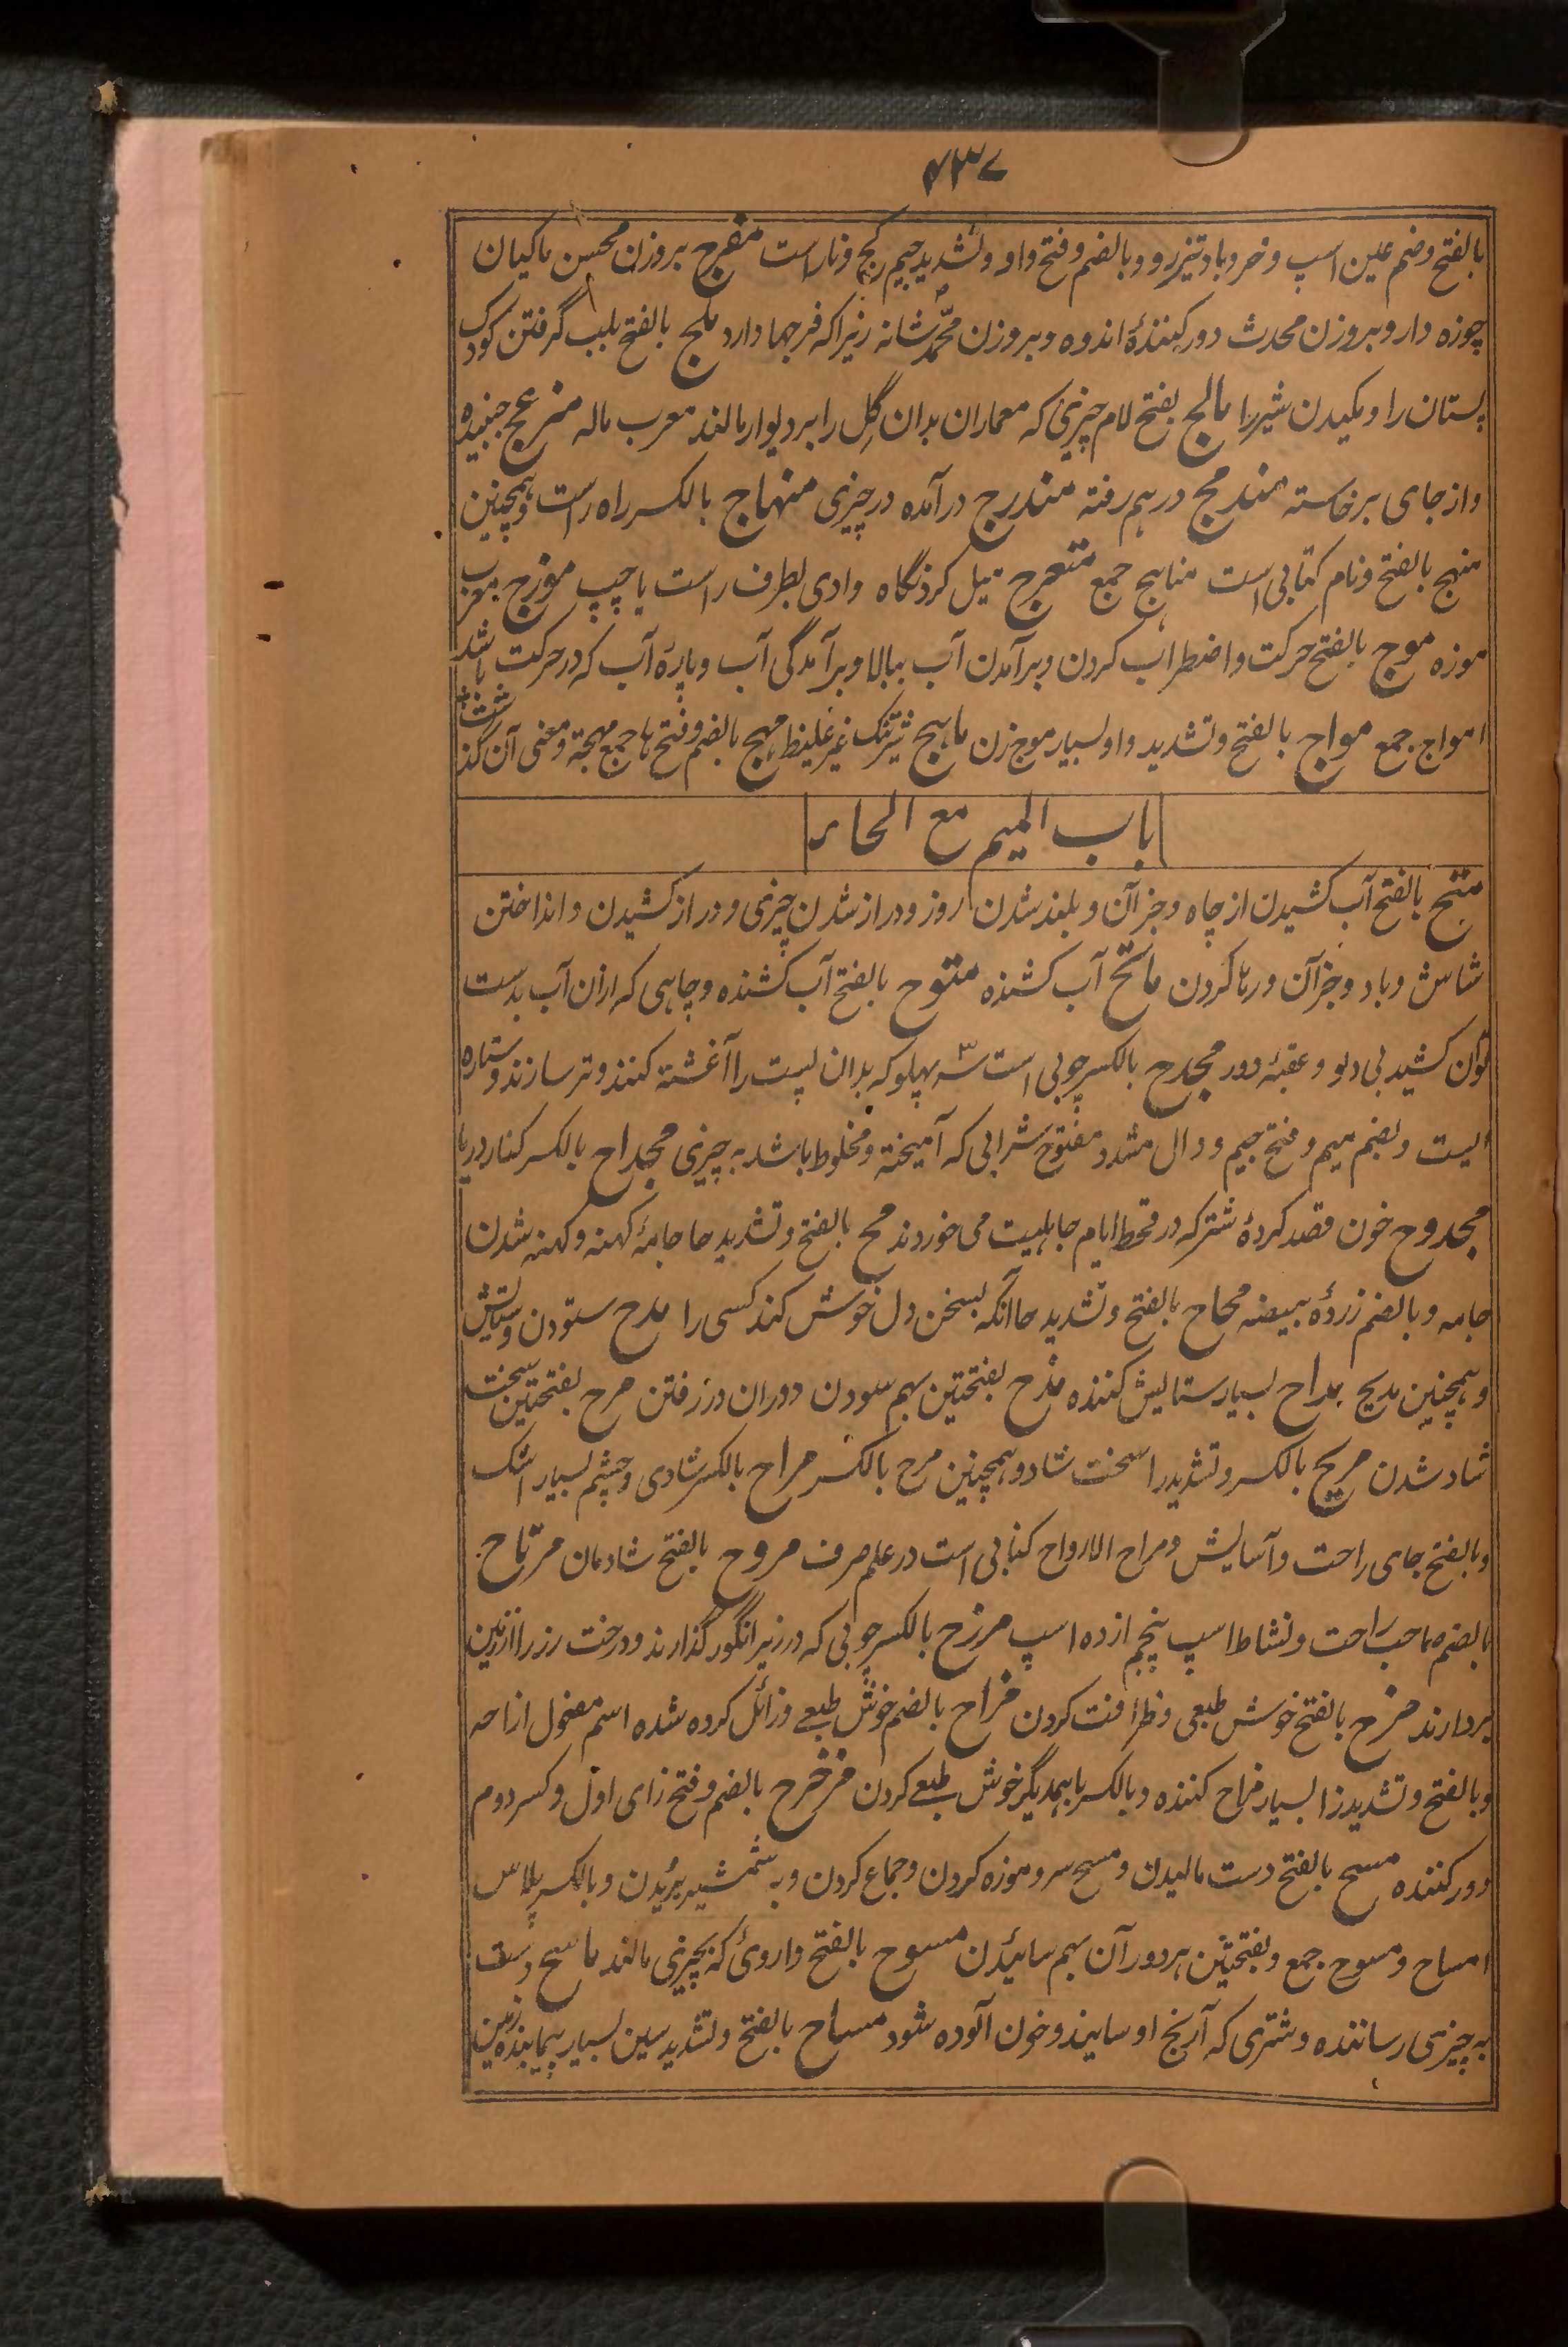 ۴۳۷
بالفتح وضم عین اسپ و خر و باد تیزرو و بالضم و فتح واو و تشدید جیم کج و ناراست مفرج بروزن محسن ماکیان
چوزه دار و بروزن محدث دور کنندهٔ اندوه و بروزن محمّد شانه زیراکه فرجها دارد ملج بالفتح بلب گرفتن کودک
پستان را و مکیدن شیر را مالج بفتح لام چیزی که معماران بدان گِل را بر دیوار مالند معرب ماله منزعج جنبیده
و از جای برخاسته مندمج درهم رفته مندرج درآمده در چیزی منهاج بالکسر راه راست و همچنین
منهج بالفتح و نام کتابی است مناهج جمع متعرج میل کردنگاه وادی بطرف راست یا چپ موزج معرب
موزه موج بالفتح حرکت و اضطراب کردن و برآمدن آب ببالا و برآمدگی آب و پارهٔ آب که در حرکت باشد
امواج جمع مواج بالفتح و تشدید واو بسیار موج زن ماهج شیر تنک غیر غلیظ مهج بالضم و فتح ها جمع مهجة و معنی آن گذشت
باب المیم مع الحاء
متح بالفتح آب کشیدن از چاه و جز آن و بلند شدن روز و دراز شدن چیزی و دراز کشیدن و انداختن
شاش و باد و جز آن و رها کردن ماتح آب کشنده متوح بالفتح آب کشنده و چاهی که ازان آب بدست
توان کشید بی دلو و عقبهٔ دور مجدح بالکسر چوبی است سه پهلو که بدان پست را آغشته کنند و تر سازند و ستاره
ایست و بضم میم و فتح جیم و دال مشدد مفتوح شرابی که آمیخته و مخلوط باشد به چیزی مجداح بالکسر کنار دریا
مجدوح خون فصد کردهٔ شتر که در قحط ایام جاهلیت می خوردند مح بالفتح و تشدید حا جامهٔ کهنه و کهنه شدن
جامه و بالضم زردهٔ بیضه محاح بالفتح و تشدید حا آنکه بسخن دل خوش کند کسی را مدح ستودن و ستایش
و همچنین مدیح مداح بسیار ستایش کننده مذح بفتحتین بهم سودن دو ران در رفتن مرح بفتحتین سخت
شاد شدن مریح بالکسر و تشدید را سخت شاد و همچنین مرح بالکسر مراح بالکسر شادی و چشم بسیار اشک
و بالفتح جای راحت و آسایش و مراح الارواح کتابی است در علم صرف مروح بالفتح شادمان مرتاح
بالضم صاحب راحت و نشاط اسپ پنجم از ده اسپ مرزح بالکسر چوبی که در زیر انگور گذارند و درخت رز را از زمین
بردارند مزح بالفتح خوش طبعی و ظرافت کردن مزاح بالضم خوش طبعے و زائل کرده شده اسم مفعول ازاحه
و بالفتح و تشدید زا بسیار مزاح کننده و بالکسر با همدیگر خوش طبعے کردن مزحزح بالضم و فتح زای اول و کسر دوم
دور کننده مسح بالفتح دست مالیدن و مسح سر و موزه کردن و جماع کردن و به شمشیر بُریدن و بالکسر پلاس
امساح و مسوح جمع و بفتحتین هر دو ران بهم سائیدن مسوح بالفتح داروئ که بچیزی مالند ماسح دست
به چیزی رساننده و شتری که آرنج او سایند و خون آلوده شود مساح بالفتح و تشدید سین بسیار پیماینده زمین